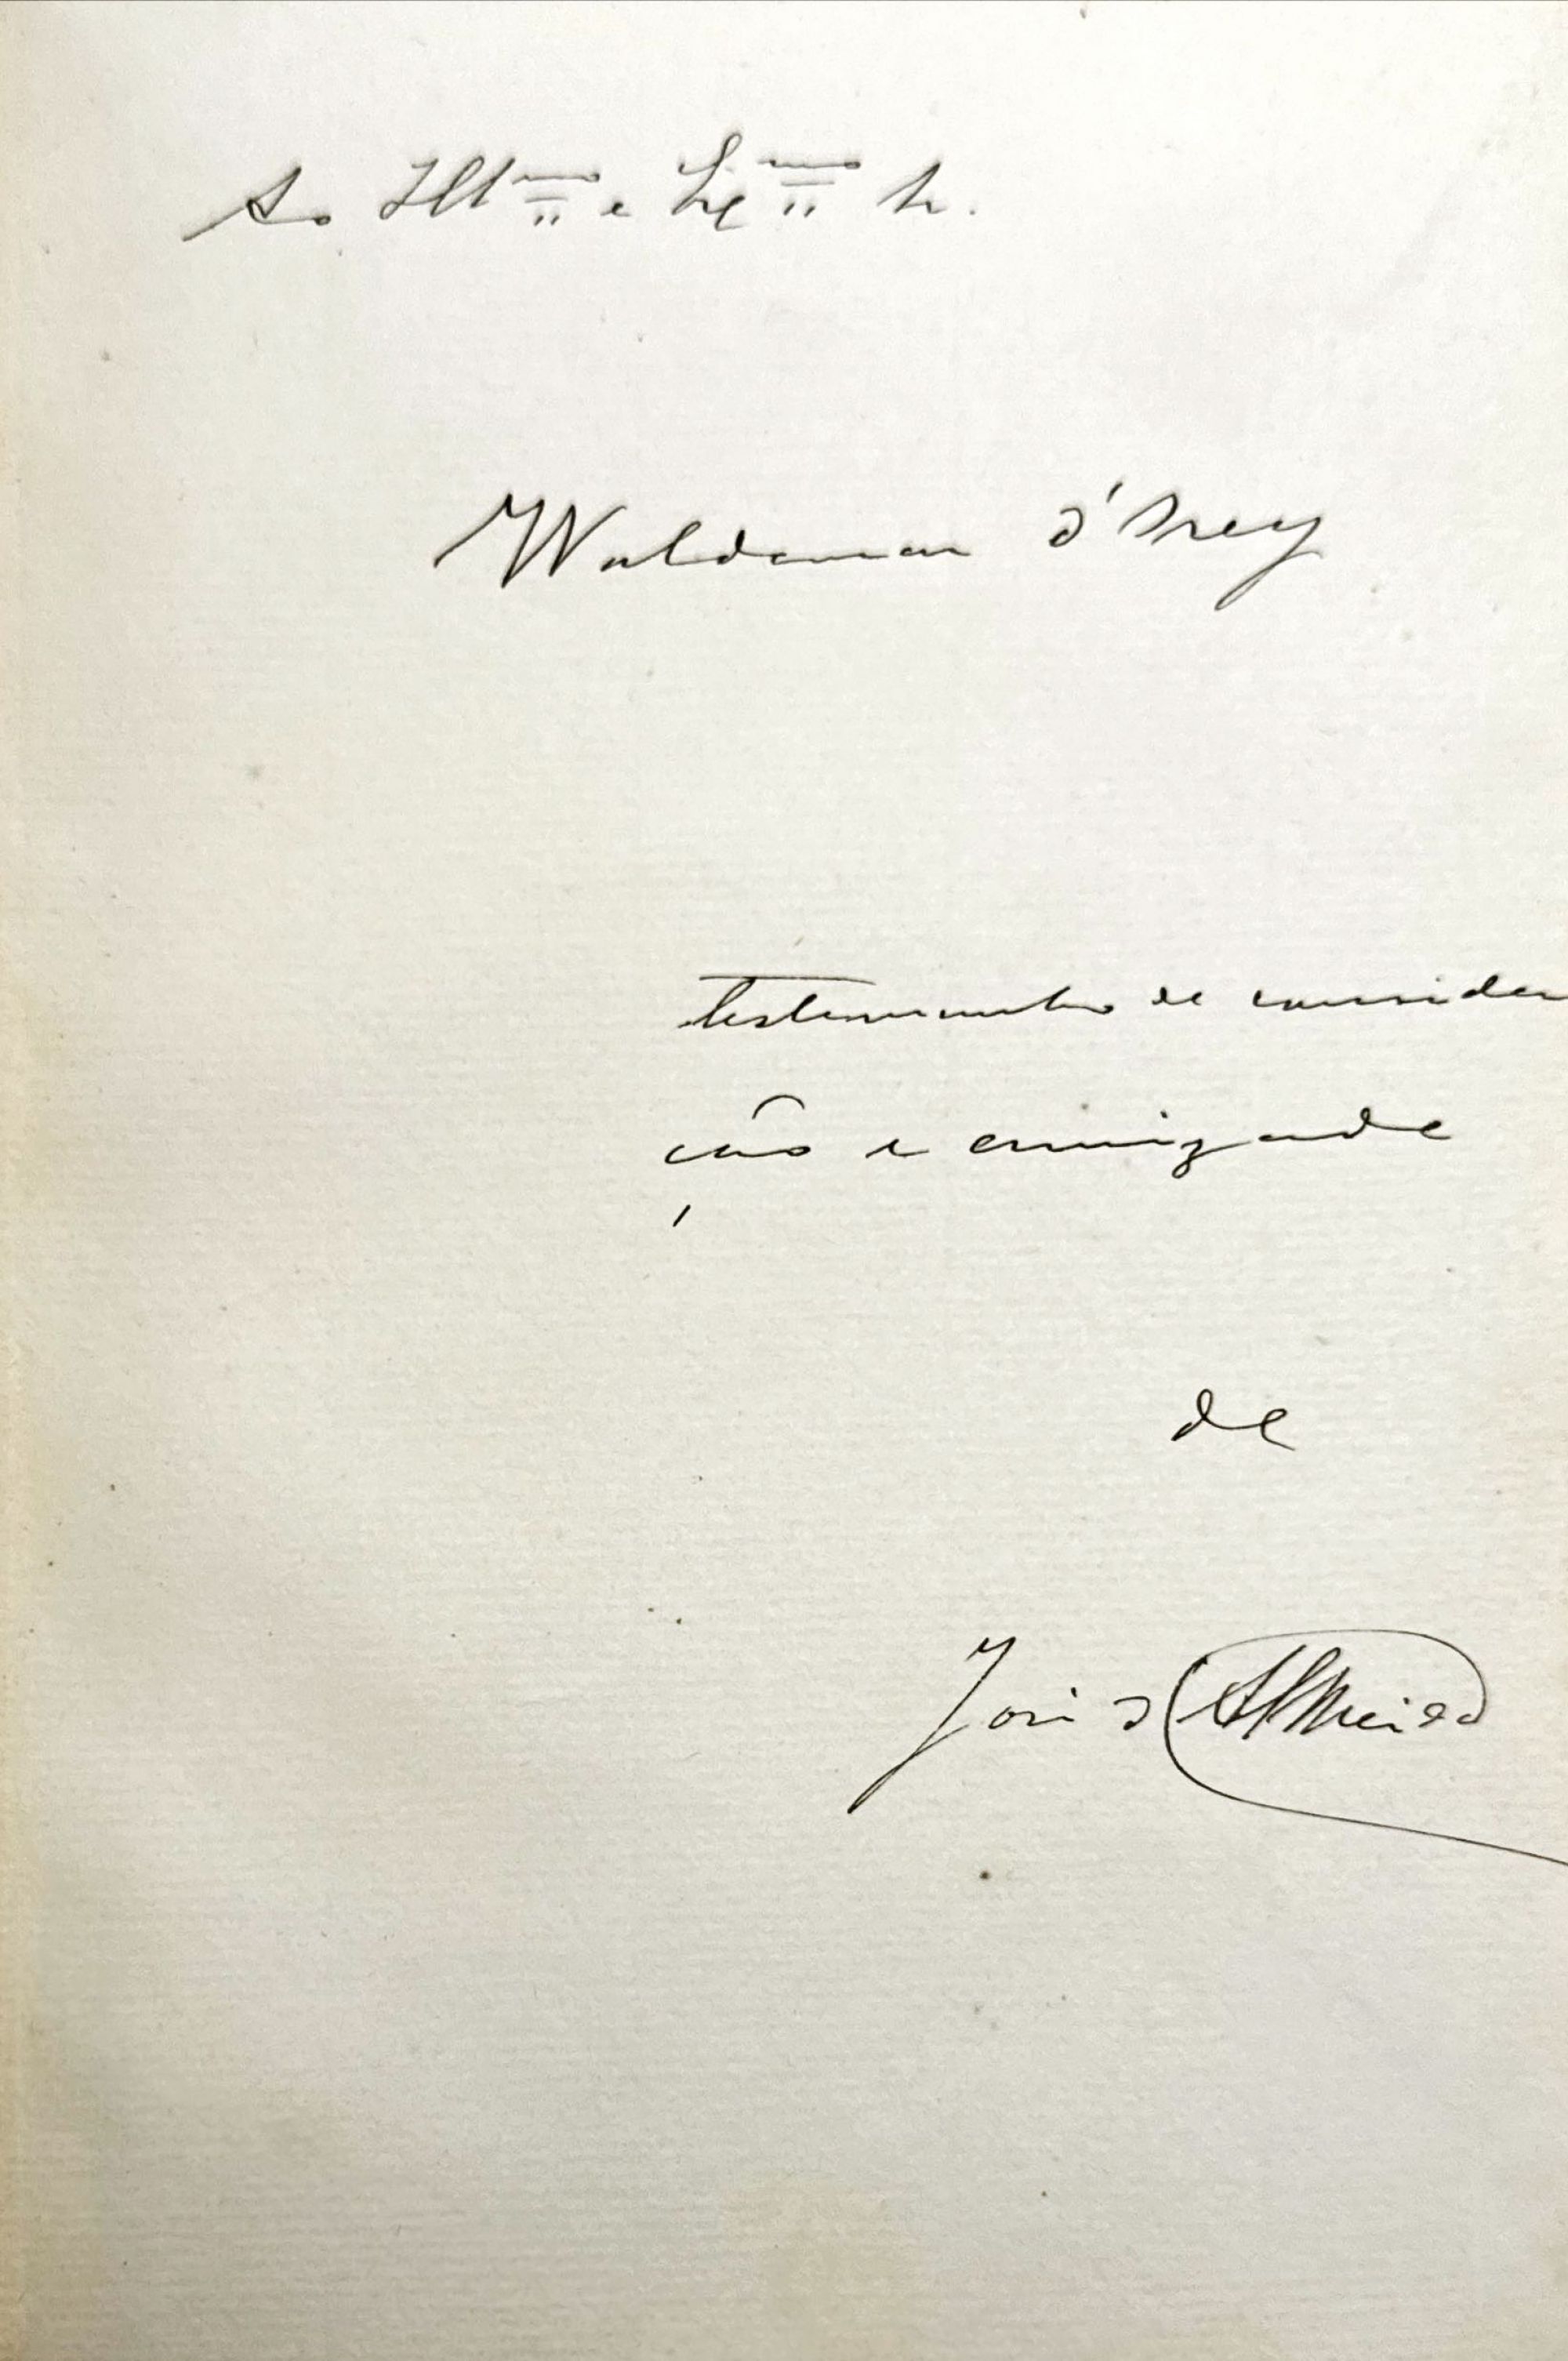 Ao Illmo e Exmo Sr.
Waldemar d'Orey
testemunho de considera
ção e amizade
de
José d'Almeida